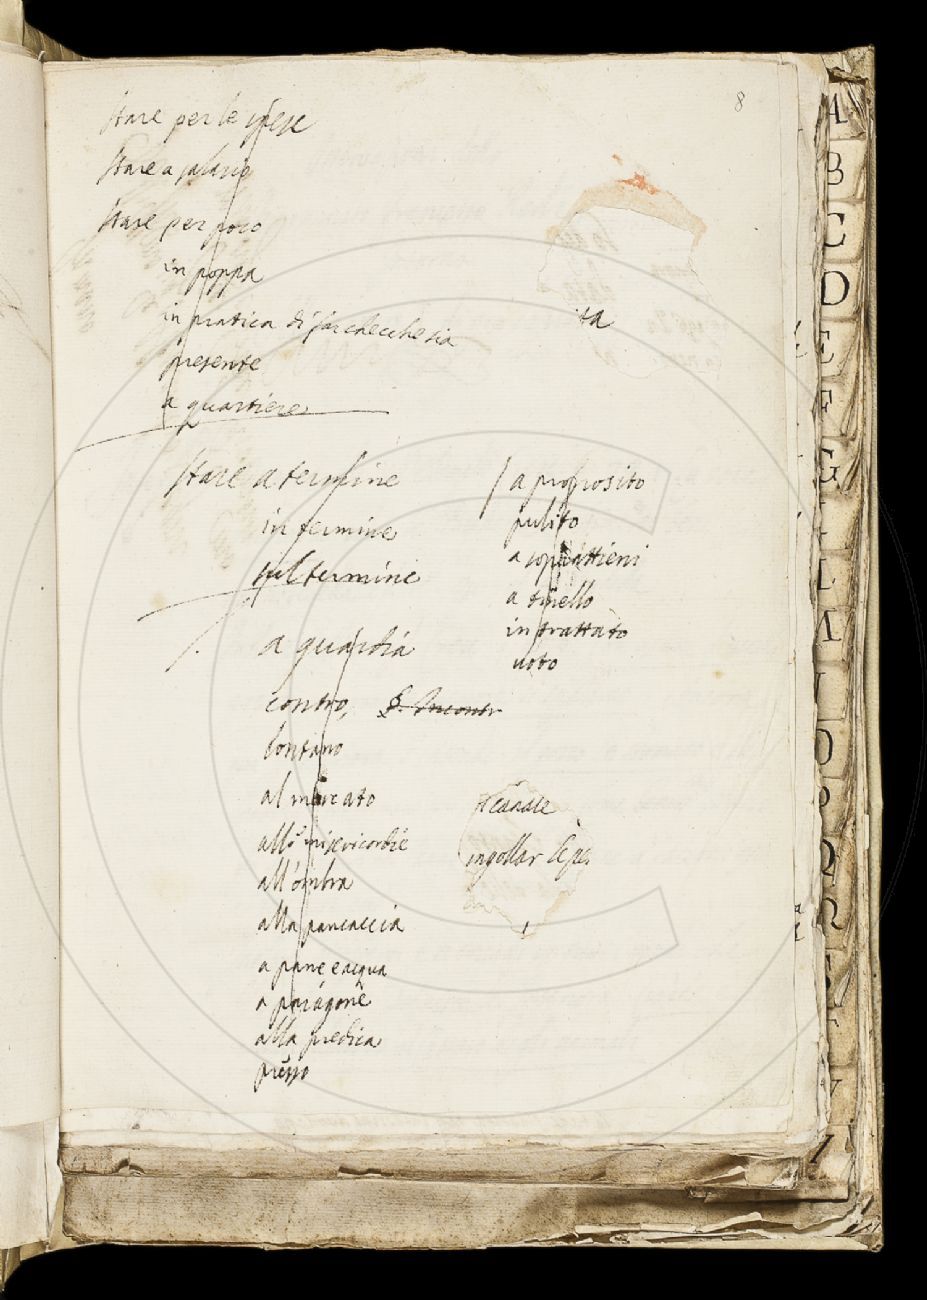 8
stare per le spese
stare a salario
stare per poco
in poppa
in pratica di far checchesia
presente
a quartiere
stare a termine
in termine
sul termine
a guardia
contro, S. Incontr
lontano
al mercato
alle misericordie
all'ombra
alla pancaccia
a pane e acqua
a paragone
alla predica
presso
/ a proposito
pulito
a soprattieni
a tinello
in trattato
uoto
ita
ticanale
ingollar
A
B
C
D
E
F
G
L
O
P
Q